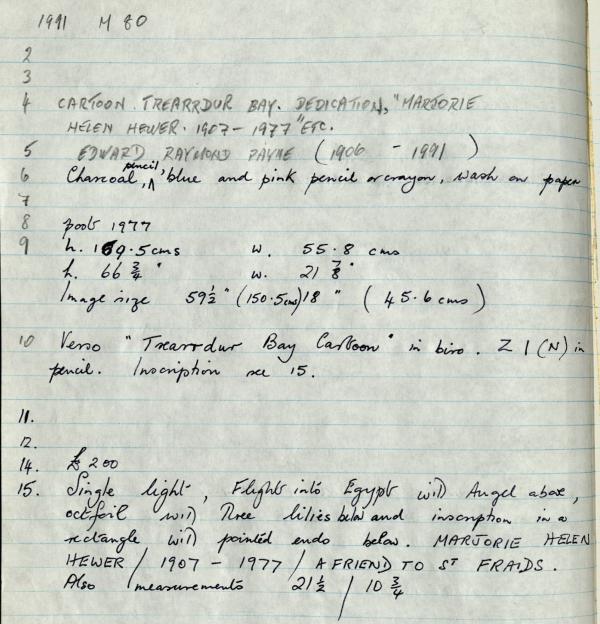 1991 M 80
2
3
4 CARTOON. TREARRDUR BAY. DEDICATION, "MARJORIE
HELEN HEWER. 1907 - 1977" ETC.
5 EDWARD RAYMOND PAYNE (1906 - 1991)
6 Charcoal, pencil, blue and pink pencil or crayon, wash on paper
7
8 post 1977
9 h. 169.5 cms w. 55.8 cms
h. 66 3/4 " w. 21 7/8 "
Image size 59 1/2 " (150.5 cms) 18 " (45.6 cms)
10 Verso "Trearrdur Bay Cartoon" in biro. Z 1 (N) in
pencil. Inscription see 15.
11.
12.
14. £200
15. Single light, Flight into Egypt with Angel above,
octfoil with three lilies below and inscription in a
rectangle with pointed ends below. MARJORIE HELEN
HEWER / 1907 - 1977 / A FRIEND TO ST FRAIDS.
Also measurements 21 1/2 / 10 3/4